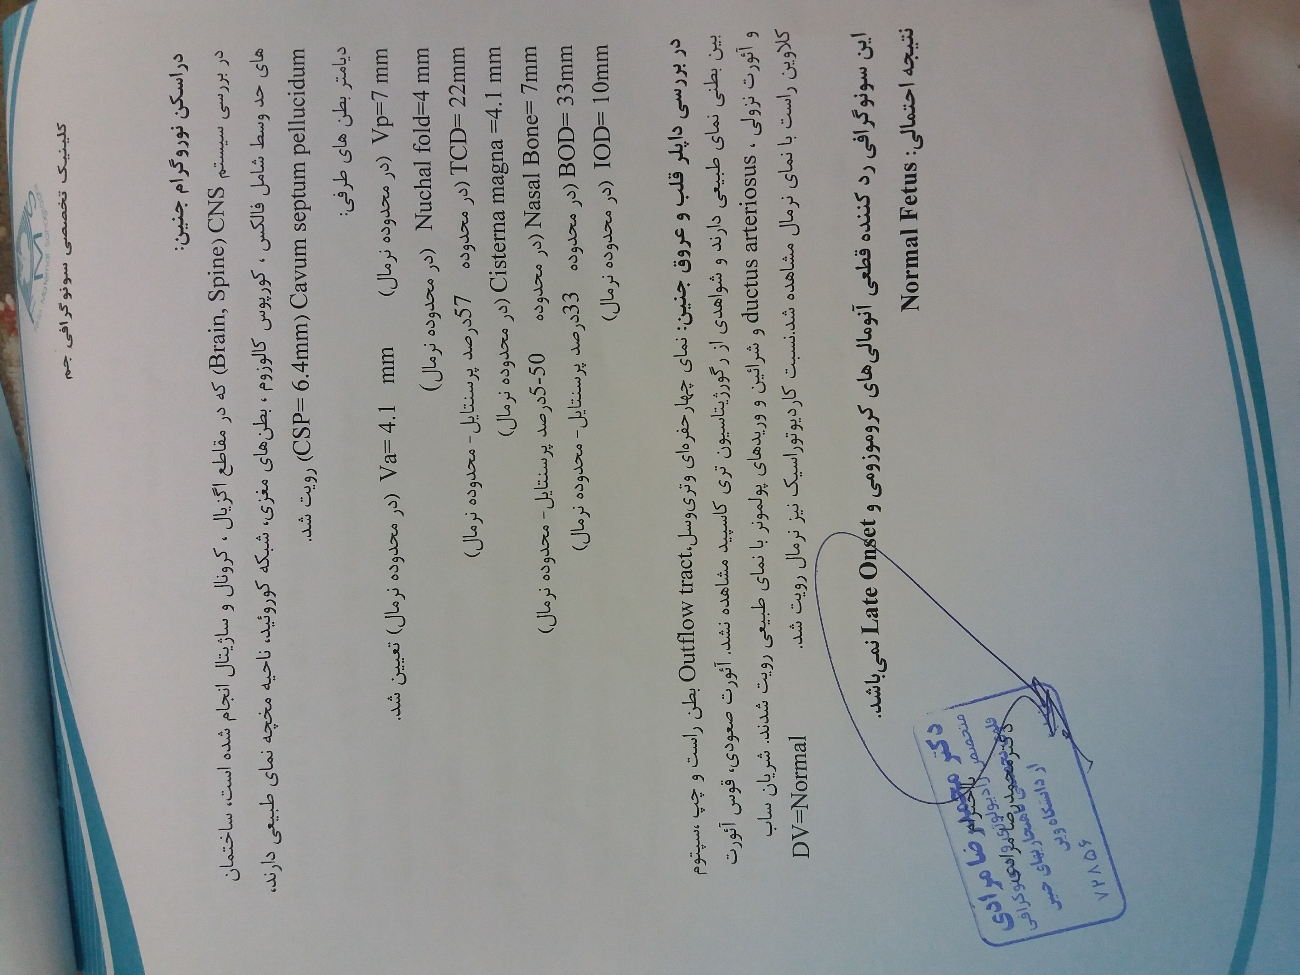 کلینیک تخصصی سونوگرافی جم
دراسکن نوروگرام جنین:
در بررسی سیستم CNS (Brain, Spine) که در مقاطع اگزیال ، کرونال و ساژیتال انجام شده است، ساختمان
های حد وسط شامل فالکس ، کورپوس کالوزوم ، بطن‌های مغزی، شبکه کوروئید، ناحیه مخچه نمای طبیعی دارند،
Cavum septum pellucidum (CSP= 6.4mm) رویت شد.
دیامتر بطن های طرفی:
Vp=7 mm (در محدوده نرمال) Va= 4.1 mm (در محدوده نرمال) تعیین شد.
Nuchal fold=4 mm (در محدوده نرمال)
TCD= 22mm (در محدوده 57درصد پرسنتایل- محدوده نرمال)
Cisterna magna =4.1 mm (در محدوده نرمال)
Nasal Bone= 7mm (در محدوده 5-50درصد پرسنتایل- محدوده نرمال)
BOD= 33mm (در محدوده 33درصد پرسنتایل- محدوده نرمال)
IOD= 10mm (در محدوده نرمال)
در بررسی داپلر قلب و عروق جنین: نمای چهارحفره‌ای وتری‌وسل،Outflow tract بطن راست و چپ ،سپتوم
بین بطنی نمای طبیعی دارند و شواهدی از رگورژیتاسیون تری کاسپید مشاهده نشد. آئورت صعودی، قوس آئورت
و آئورت نزولی ، ductus arteriosus و شرائین و وریدهای پولمونر با نمای طبیعی رویت شدند. شریان ساب
کلاوین راست با نمای نرمال مشاهده شد.نسبت کاردیوتوراسیک نیز نرمال رویت شد. DV=Normal
این سونوگرافی رد کننده قطعی آنومالی‌های کروموزومی و Late Onset نمی‌باشد.
نتیجه احتمالی: Normal Fetus
دکتر محمدرضا مرادی
متخصص رادیولوژی
دکترمحمدرضا مرادی
ناهنجاریهای جنین
از دانشگاه وین
۷۲۸۵۶